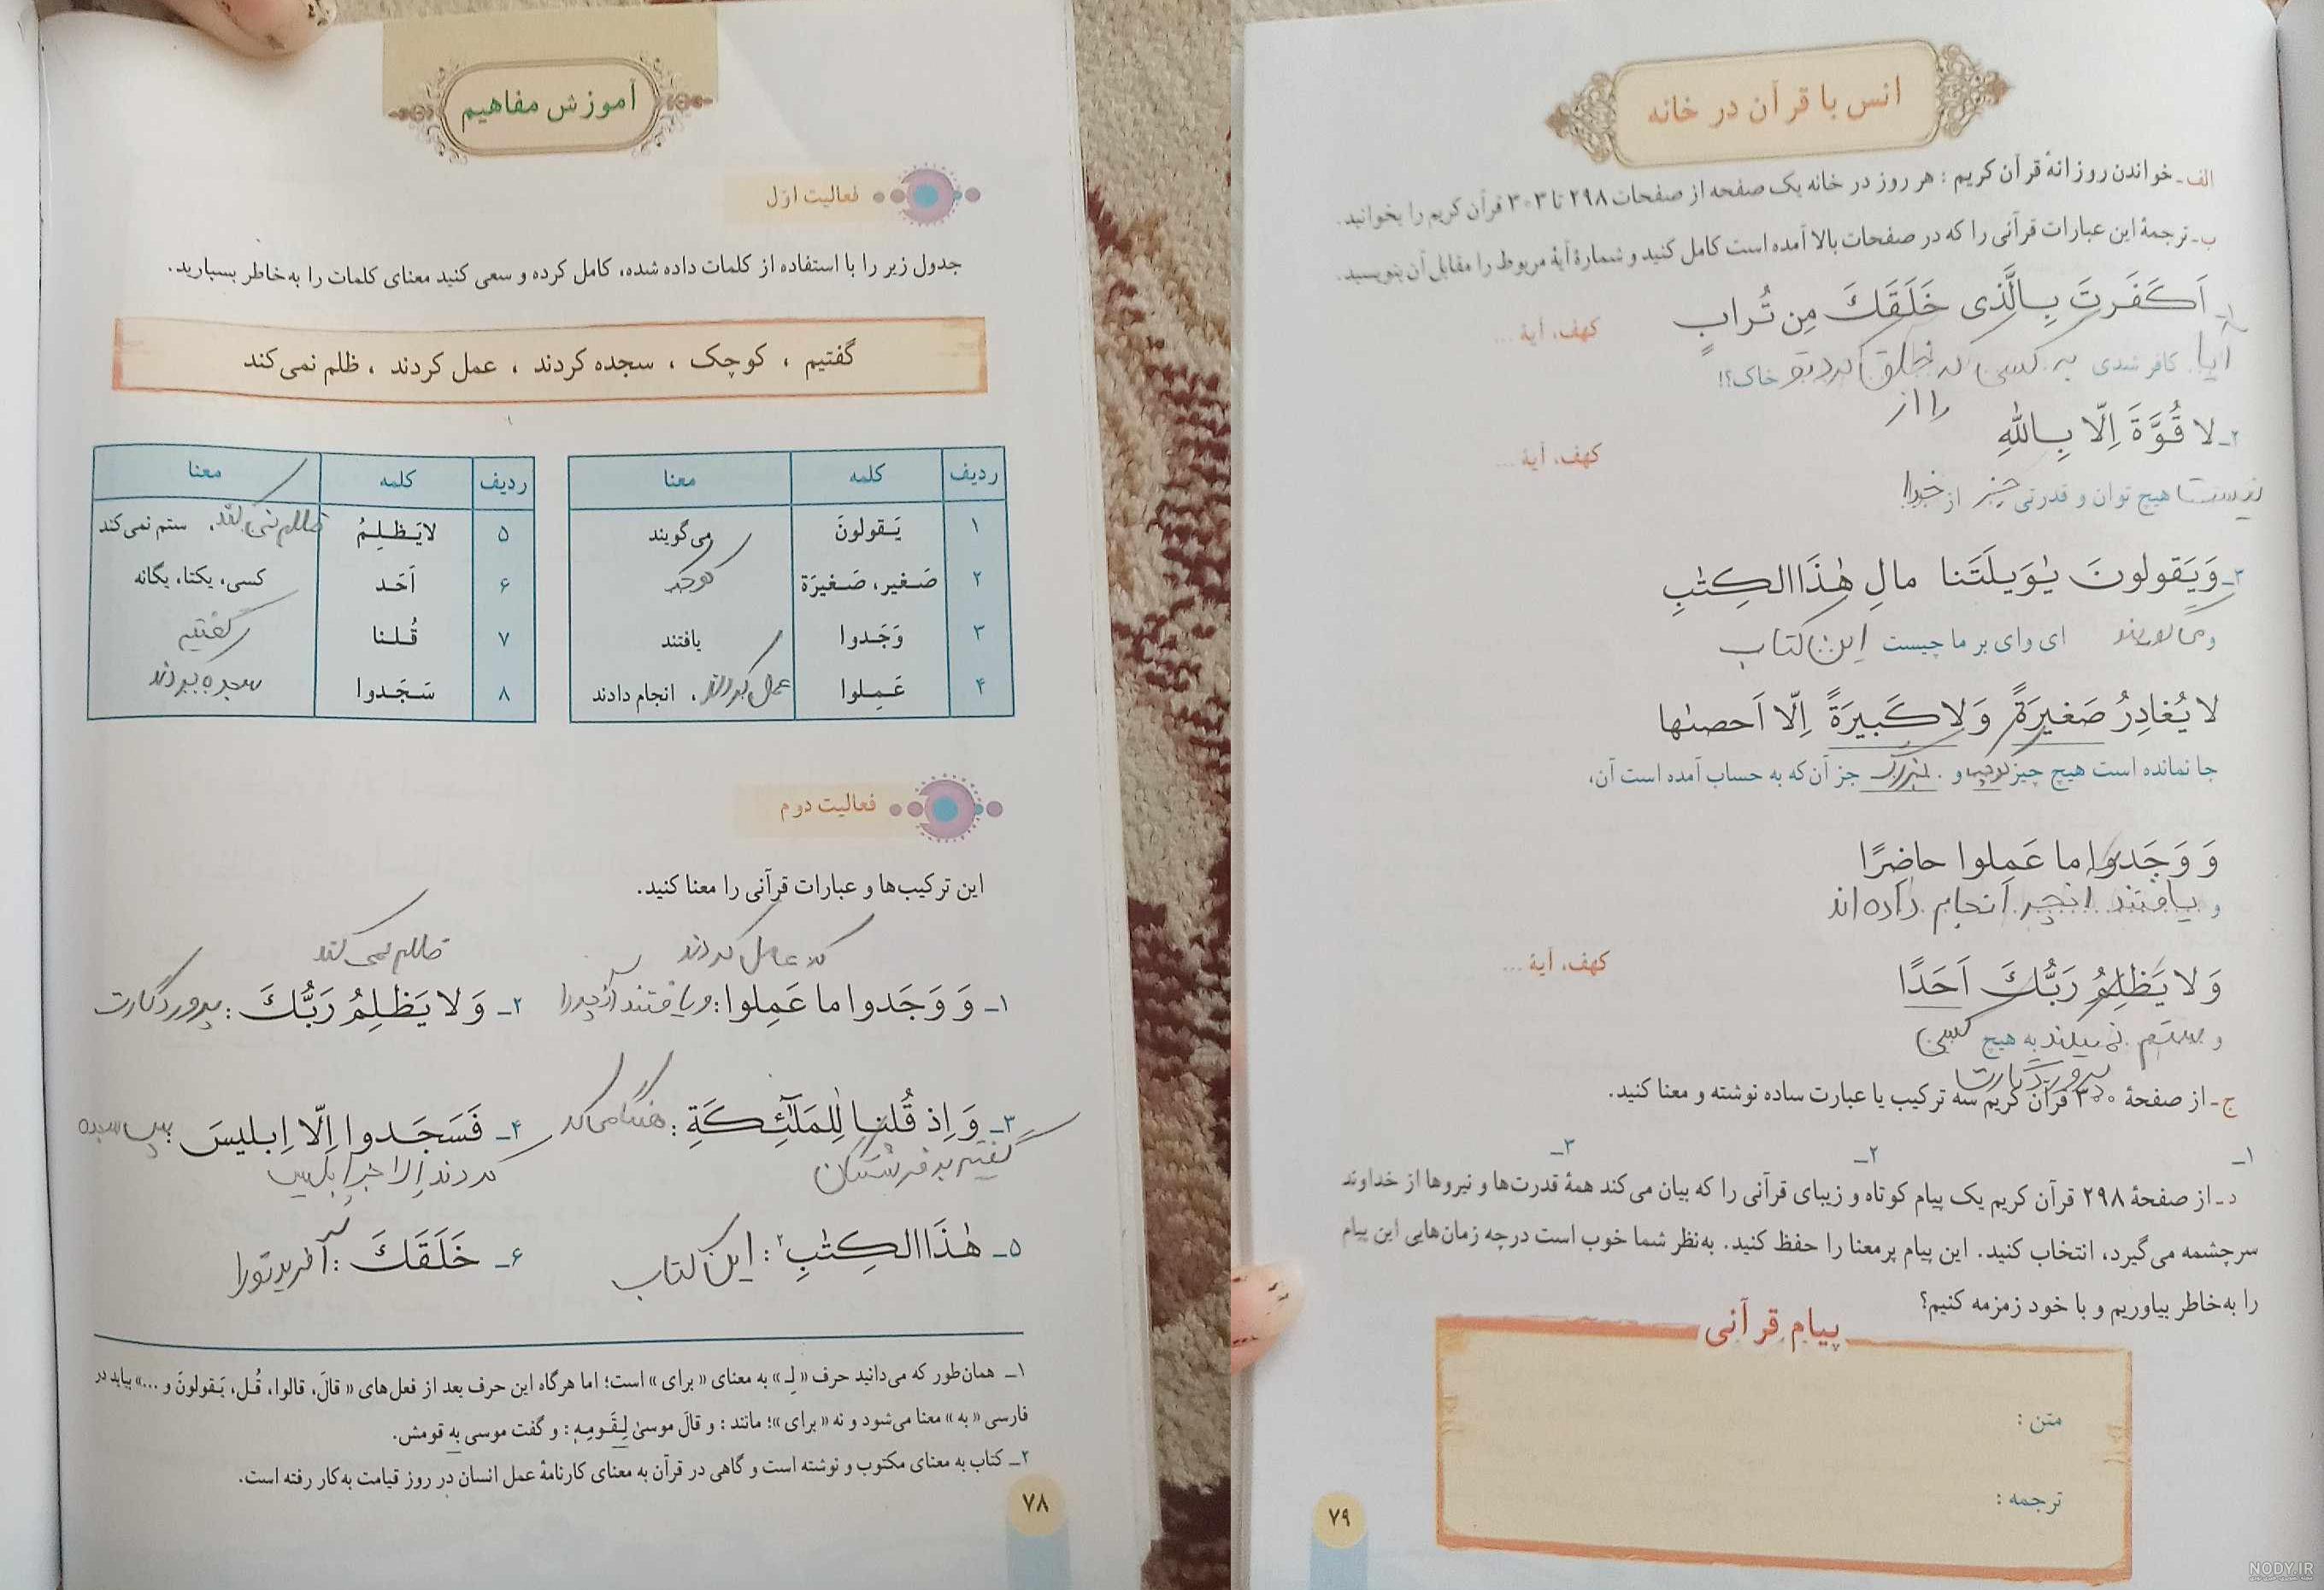 آموزش مفاهیم
فعالیت اوّل
جدول زیر را با استفاده از کلمات داده شده، کامل کرده و سعی کنید معنای کلمات را به‌خاطر بسپارید.
گفتیم ، کوچک ، سجده کردند ، عمل کردند ، ظلم نمی‌کند
ردیف کلمه معنا
۱ یَـقولونَ می‌گویند
۲ صَـغیر، صَـغیرَة کوچک
۳ وَجَـدوا یافتند
۴ عَـمِـلوا عمل کردند ، انجام دادند
ردیف کلمه معنا
۵ لایَـظـلِـمُ ظلم نمی کند ، ستم نمی‌کند
۶ اَحَـد کسی، یکتا، یگانه
۷ قُـلـنا گفتیم
۸ سَـجَـدوا سجده کردند
فعالیت دوم
این ترکیب‌ها و عبارات قرآنی را معنا کنید.
۱ـ وَ وَجَدوا ما عَمِلوا : و یافتند آنچه را
که عمل کردند
۲ـ وَ لا یَظلِمُ رَبُّكَ : پروردگارت
ظلم نمی کند
۳ـ وَ اِذ قُلنا لِلمَلٰٓئِکَةِ :
گفتیم به فرشتگان
۴ـ فَسَجَـدوا اِلّا اِبلیسَ : پس سجده
کردند
۵ـ هٰذَا الکِتٰبِ۲ : این کتاب
۶ـ خَلَقَكَ : آفرید تو را
۱ـ همان‌طور که می‌دانید حرف « لِـ » به معنای « برای » است؛ اما هرگاه این حرف بعد از فعل‌های « قالَ، قالوا، قُـل، یَـقولونَ و ...» بیاید در
فارسی « به » معنا می‌شود و نه « برای »؛ مانند : و قالَ موسیٰ لِـقَـومِـهٖ : و گفت موسی به قومش.
۲ـ کتاب به معنای مکتوب و نوشته است و گاهی در قرآن به معنای کارنامهٔ عمل انسان در روز قیامت به‌کار رفته است.
۷۸
انس با قرآن در خانه
الف ـ خواندن روزانهٔ قرآن کریم : هر روز در خانه یک صفحه از صفحات ۲۹۸ تا ۳۰۳ قرآن کریم را بخوانید.
ب ـ ترجمهٔ این عبارات قرآنی را که در صفحات بالا آمده است کامل کنید و شمارهٔ آیهٔ مربوط را مقابل آن بنویسید.
۱ـ اَکَفَرتَ بِـالَّذی خَلَقَكَ مِن تُرابٍ کهف، آیهٔ ...
آیا کافر شدی به کسی که خلق کرد تو خاک؟!
را از
۲ـ لا قُوَّةَ اِلّا بِـاللّٰهِ کهف، آیهٔ ...
نیست هیچ توان و قدرتی جز از خدا
۳ـ وَ یَقولونَ یٰوَیلَتَنا مالِ هٰذَا الکِتٰبِ
و می گویند ای وای بر ما چیست این کتاب
لا یُغادِرُ صَغیرَةً وَ لا کَبیرَةً اِلّا اَحصىٰها
جا نمانده است هیچ چیز کوچک و بزرگ جز آن که به حساب آمده است آن،
وَ وَجَدوا ما عَمِلوا حاضِرًا
و یافتند آنچه انجام داده اند
وَ لا یَظلِمُ رَبُّكَ اَحَدًا کهف، آیهٔ ...
و ستم نمیکند به هیچ کسی
پروردگارت
ج ـ از صفحهٔ ۳۰۰ قرآن کریم سه ترکیب یا عبارت ساده نوشته و معنا کنید.
۱ـ ۲ـ ۳ـ
د ـ از صفحهٔ ۲۹۸ قرآن کریم یک پیام کوتاه و زیبای قرآنی را که بیان می‌کند همهٔ قدرت‌ها و نیروها از خداوند
سرچشمه می‌گیرد، انتخاب کنید. این پیام پرمعنا را حفظ کنید. به‌نظر شما خوب است درچه زمان‌هایی این پیام
را به‌خاطر بیاوریم و با خود زمزمه کنیم؟
پیام قرآنی
متن :
ترجمه :
۷۹
NODY.IR